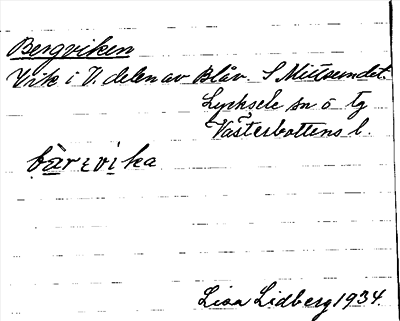 Bergviken
Vik i V. delen av Blåv. S Mittsundet.
Lycksele sn o tg
Västerbottens l.
bàrɛvika
Lisa Lidberg 1934.